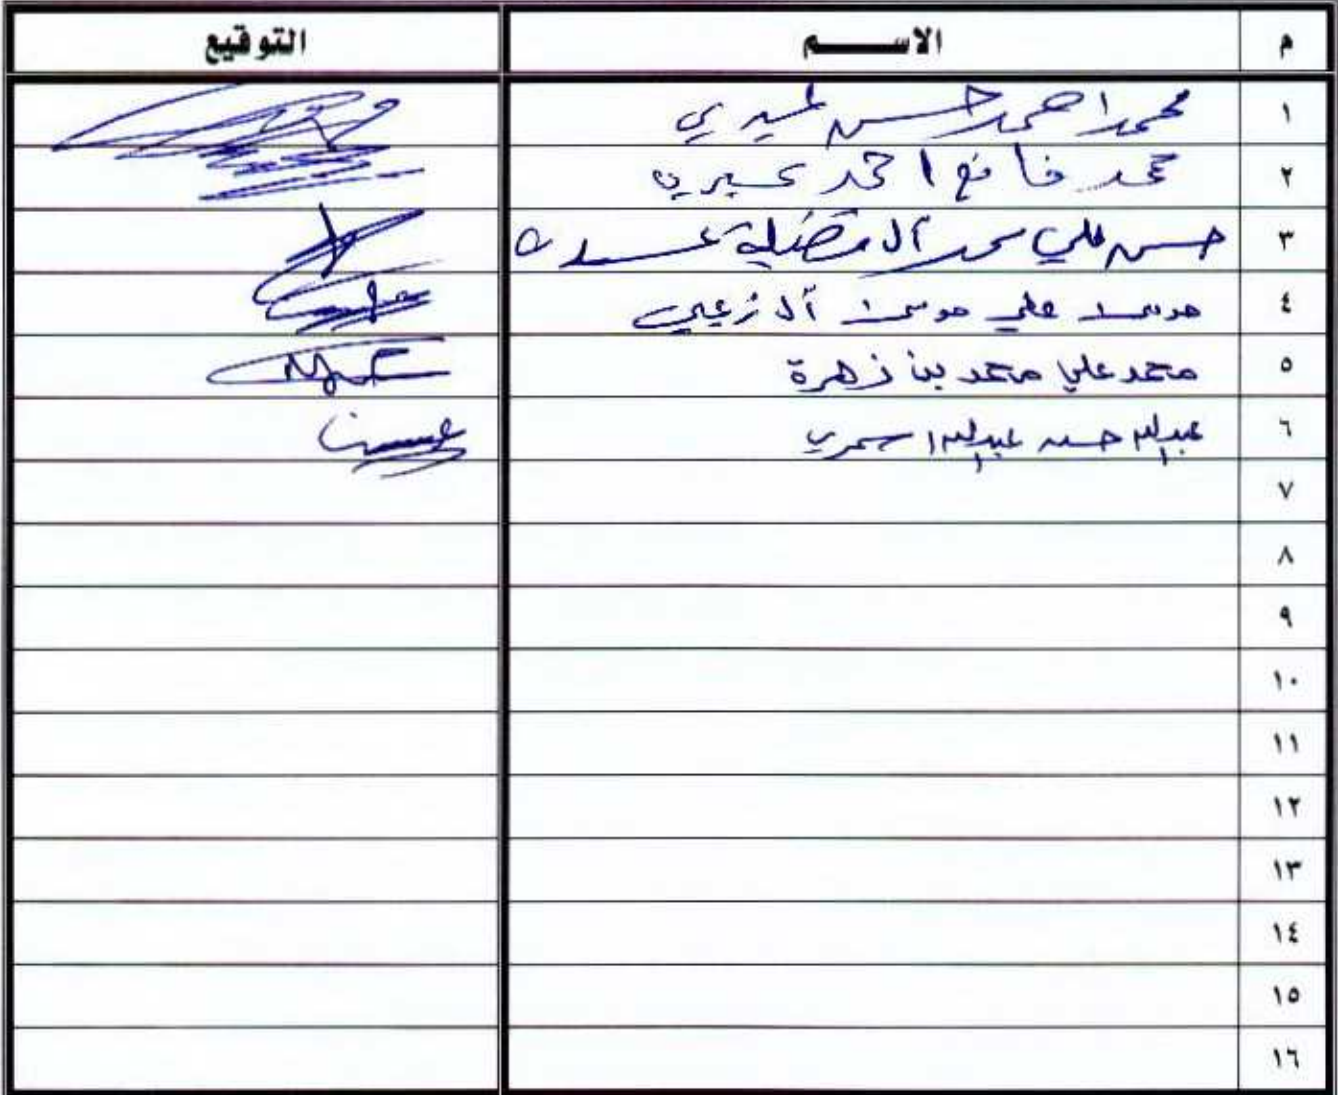 م الاســـم التوقيع
١ محمد احمد حسن عسيري
٢ محمد فا نع احمد عسيري
٣ حسن علي محمد آل
٤ موسى علي موسى آل زعبي
٥ محمد علي محمد بن زهرة
٦ عبدالله حسن عبدالله اسمري
٧
٨
٩
١٠
١١
١٢
١٣
١٤
١٥
١٦